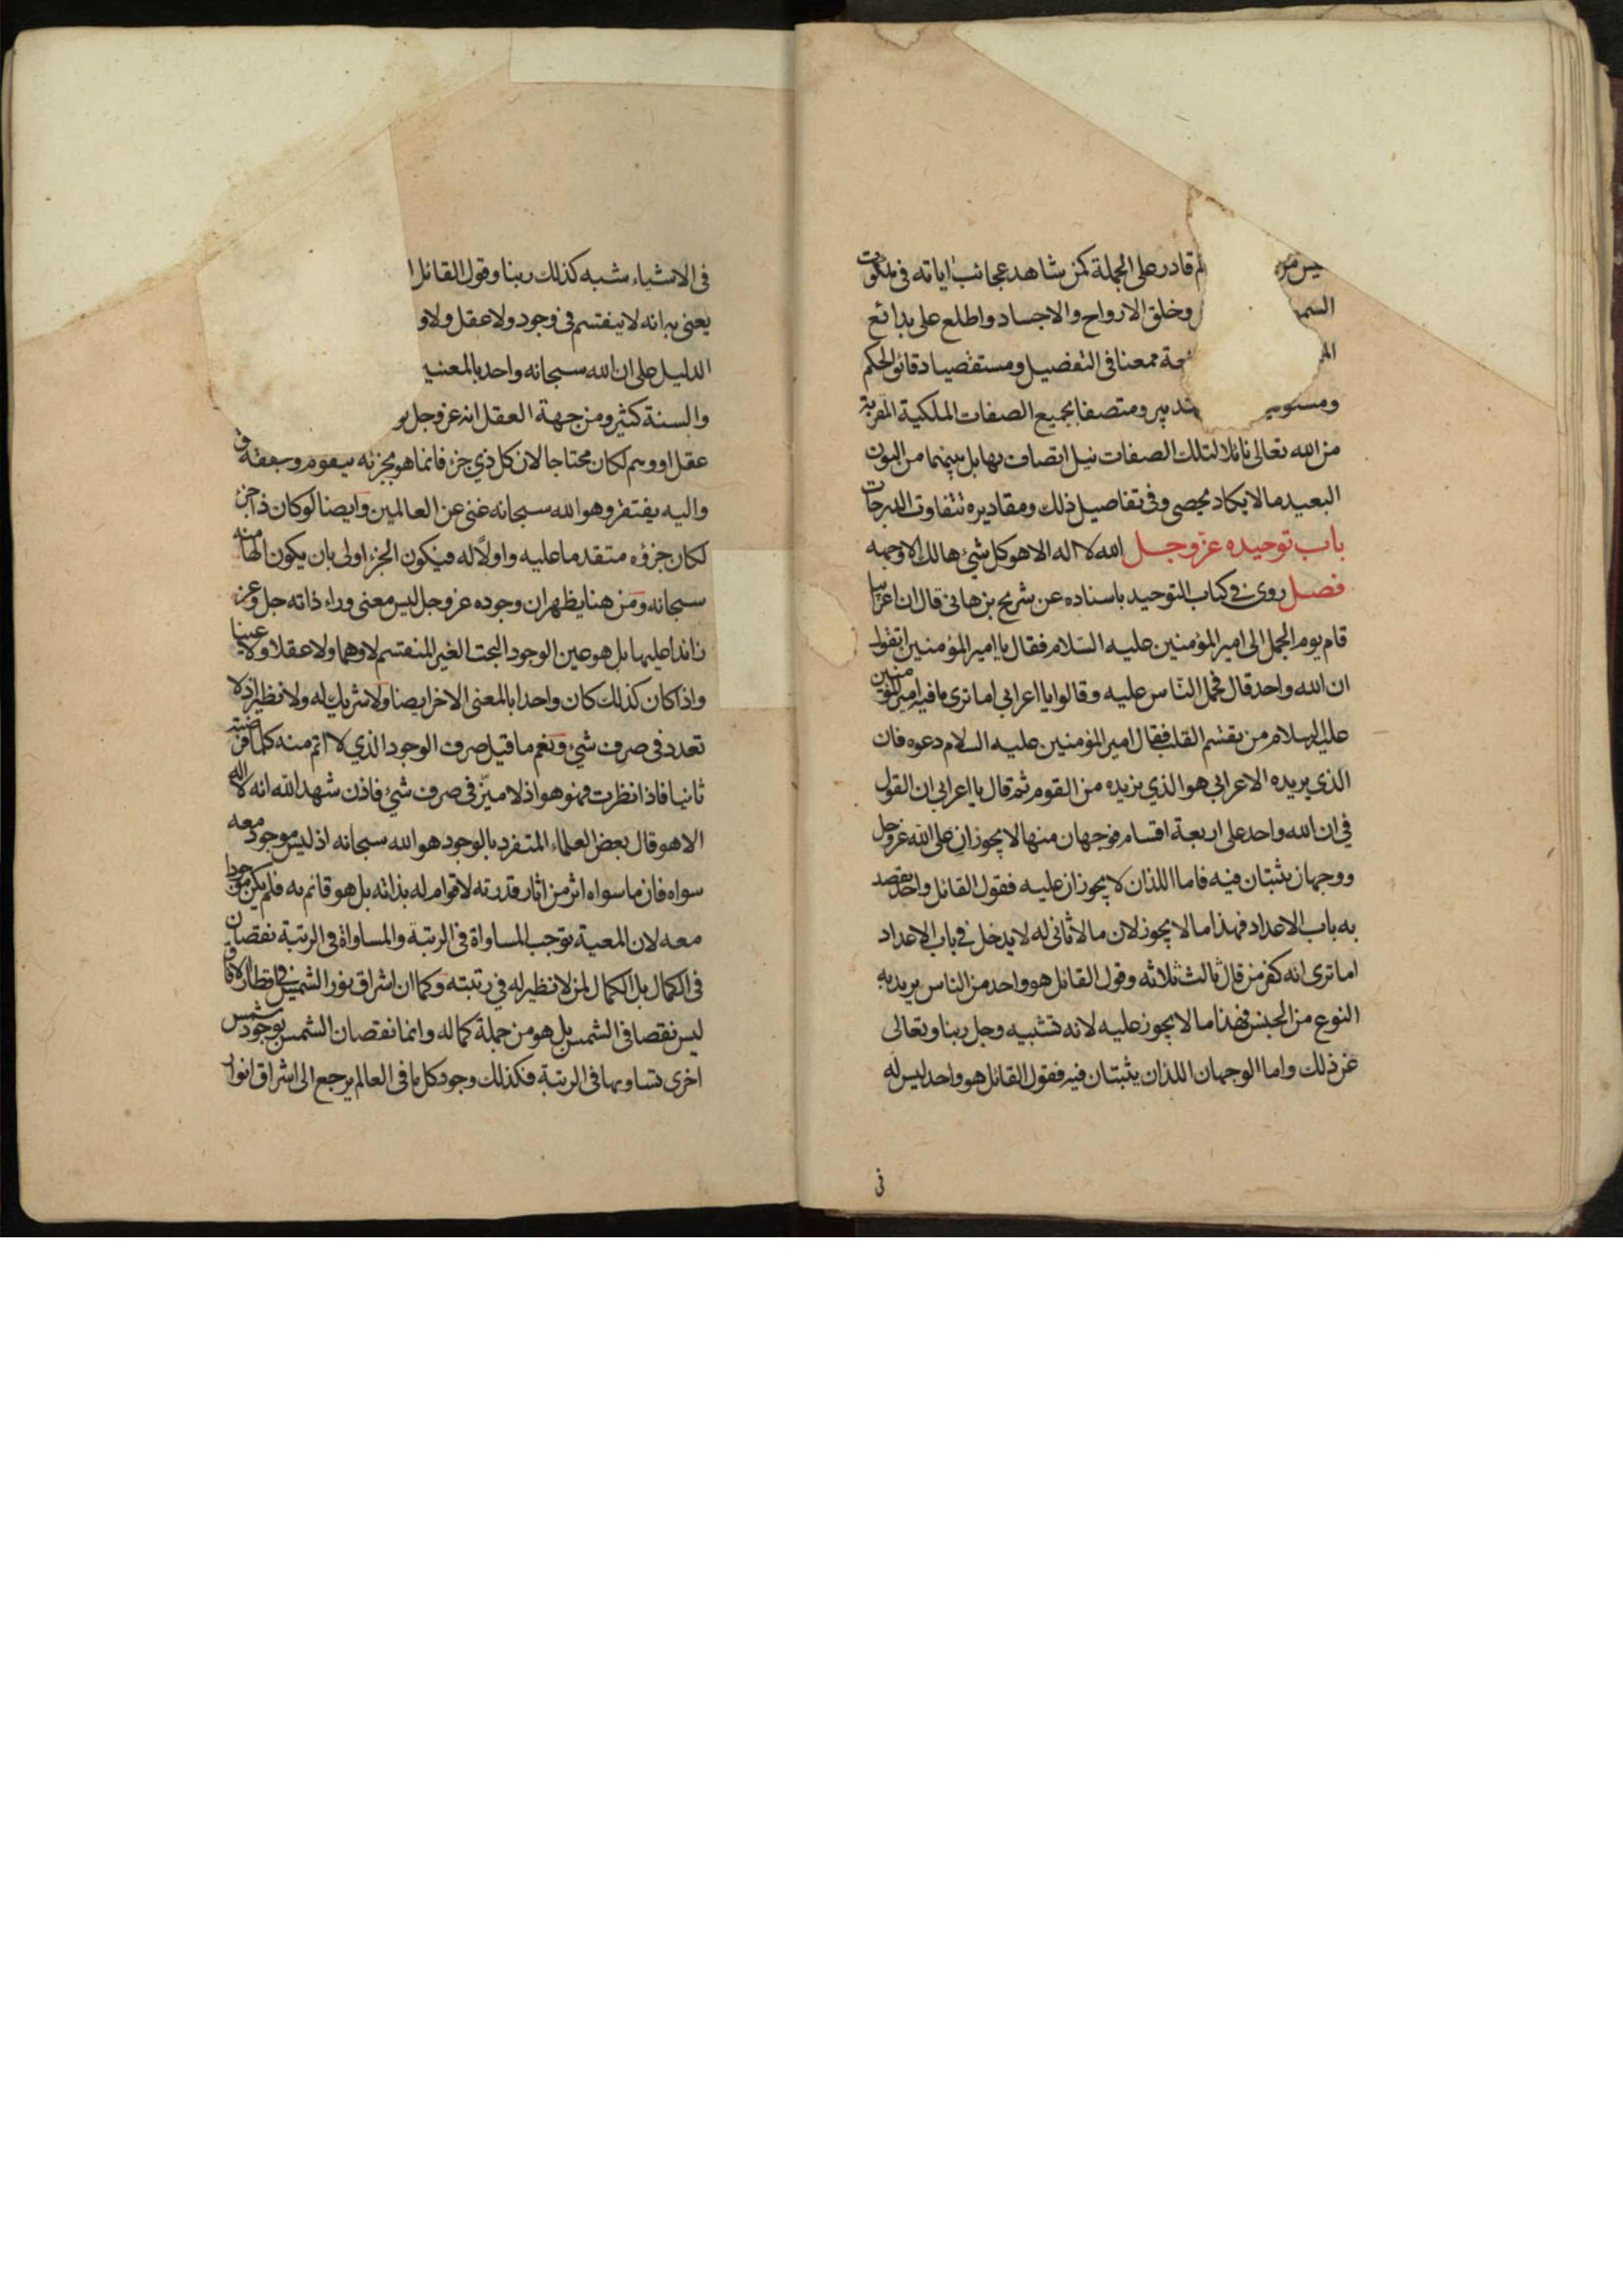 ليس من م قادر على الجملة كمن شاهد عجائب اياته في ملكوت
السم وخلق الارواح والاجساد واطلع على بدائع
الم عة ممعنا في التفصيل ومستقصيا دقائق الحكم
ومستوفيا تدبير ومتصفا بجميع الصفات الملكية المقربة
من الله تعالى نائلا لتلك الصفات نيل اتصاف بها بل بينهما من البون
البعيد ما لا يكاد يحصى وفي تفاصيل ذلك ومقاديره تتفاوت الدرجات
باب توحيده عز وجل الله لا اله الا هو كل شئ هالك الا وجهه
فصل روى في كتاب التوحيد باسناده عن شريح بن هانى قال ان اعرابيا
قام يوم الجمل الى امير المؤمنين عليه السلام فقال يا امير المؤمنين اتقول
ان الله واحد قال فحمل الناس عليه وقالوا يا اعرابي اما ترى ما فيه امير المؤمنين
عليه السلام من تقسم القلب فقال امير المؤمنين عليه السلام دعوه فان
الذي يريده الاعرابي هو الذي نريده من القوم ثم قال يا اعرابي ان القول
في ان الله واحد على اربعة اقسام فوجهان منها لا يجوزان على الله عز وجل
ووجهان يثبتان فيه فاما اللذان لا يجوزان عليه فقول القائل واحد يقصد
به باب الاعداد فهذا ما لا يجوز لان ما لا ثاني له لا يدخل في باب الاعداد
اما ترى انه كفر من قال ثالث ثلاثه وقول القائل هو واحد من الناس يريد به
النوع من الجنس فهذا ما لا يجوز عليه لانه تشبيه وجل ربنا وتعالى
عن ذلك واما الوجهان اللذان يثبتان فيه فقول القائل هو واحد ليس له
في
في الاشياء شبه كذلك ربنا وقول القائل ا
يعنى به انه لا ينقسم في وجود ولا عقل ولا و
الدليل على ان الله سبحانه واحد بالمعنيين
والسنة كثير ومن جهة العقل انه عز وجل لو
عقل او وهم لكان محتاجا لان كل ذي جزء فانما هو بجزئه يتقوم وبتحققه
واليه يفتقر وهو الله سبحانه غنى عن العالمين وايضا لو كان ذا جزء
لكان جزؤه متقدما عليه واولا له فيكون الجزء اولى بان يكون الها منه
سبحانه ومن هنا يظهر ان وجوده عز وجل ليس معنى وراء ذاته جل وعز
زائدا عليها بل هو عين الوجود البحت الغير المنقسم لا وهما ولا عقلا ولا عينا
واذا كان كذلك كان واحدا بالمعنى الاخر ايضا ولا شريك له ولا نظير اذ لا
تعدد في صرف شئ ونعم ما قيل صرف الوجود الذي لا اتم منه كلما فرضته
ثانيا فاذا نظرت فهو هو اذ لا ميز في صرف شئ فاذن شهد الله انه لا اله
الا هو قال بعض العلماء المتفرد بالوجود هو الله سبحانه اذ ليس موجود معه
سواه فان ما سواه اثر من اثار قدرته لا قوام له بذاته بل هو قائم به فلم يكن موجودا
معه لان المعية توجب المساواة في الرتبة والمساواة في الرتبة نقصان
في الكمال بل الكمال لمن لا نظير له في رتبته وكما ان اشراق نور الشمس في اقطار الافاق
ليس نقصا في الشمس بل هو من جملة كماله وانما نقصان الشمس بوجود شمس
اخرى تساويها في الرتبة فكذلك وجود كل ما في العالم يرجع الى اشراق انوار